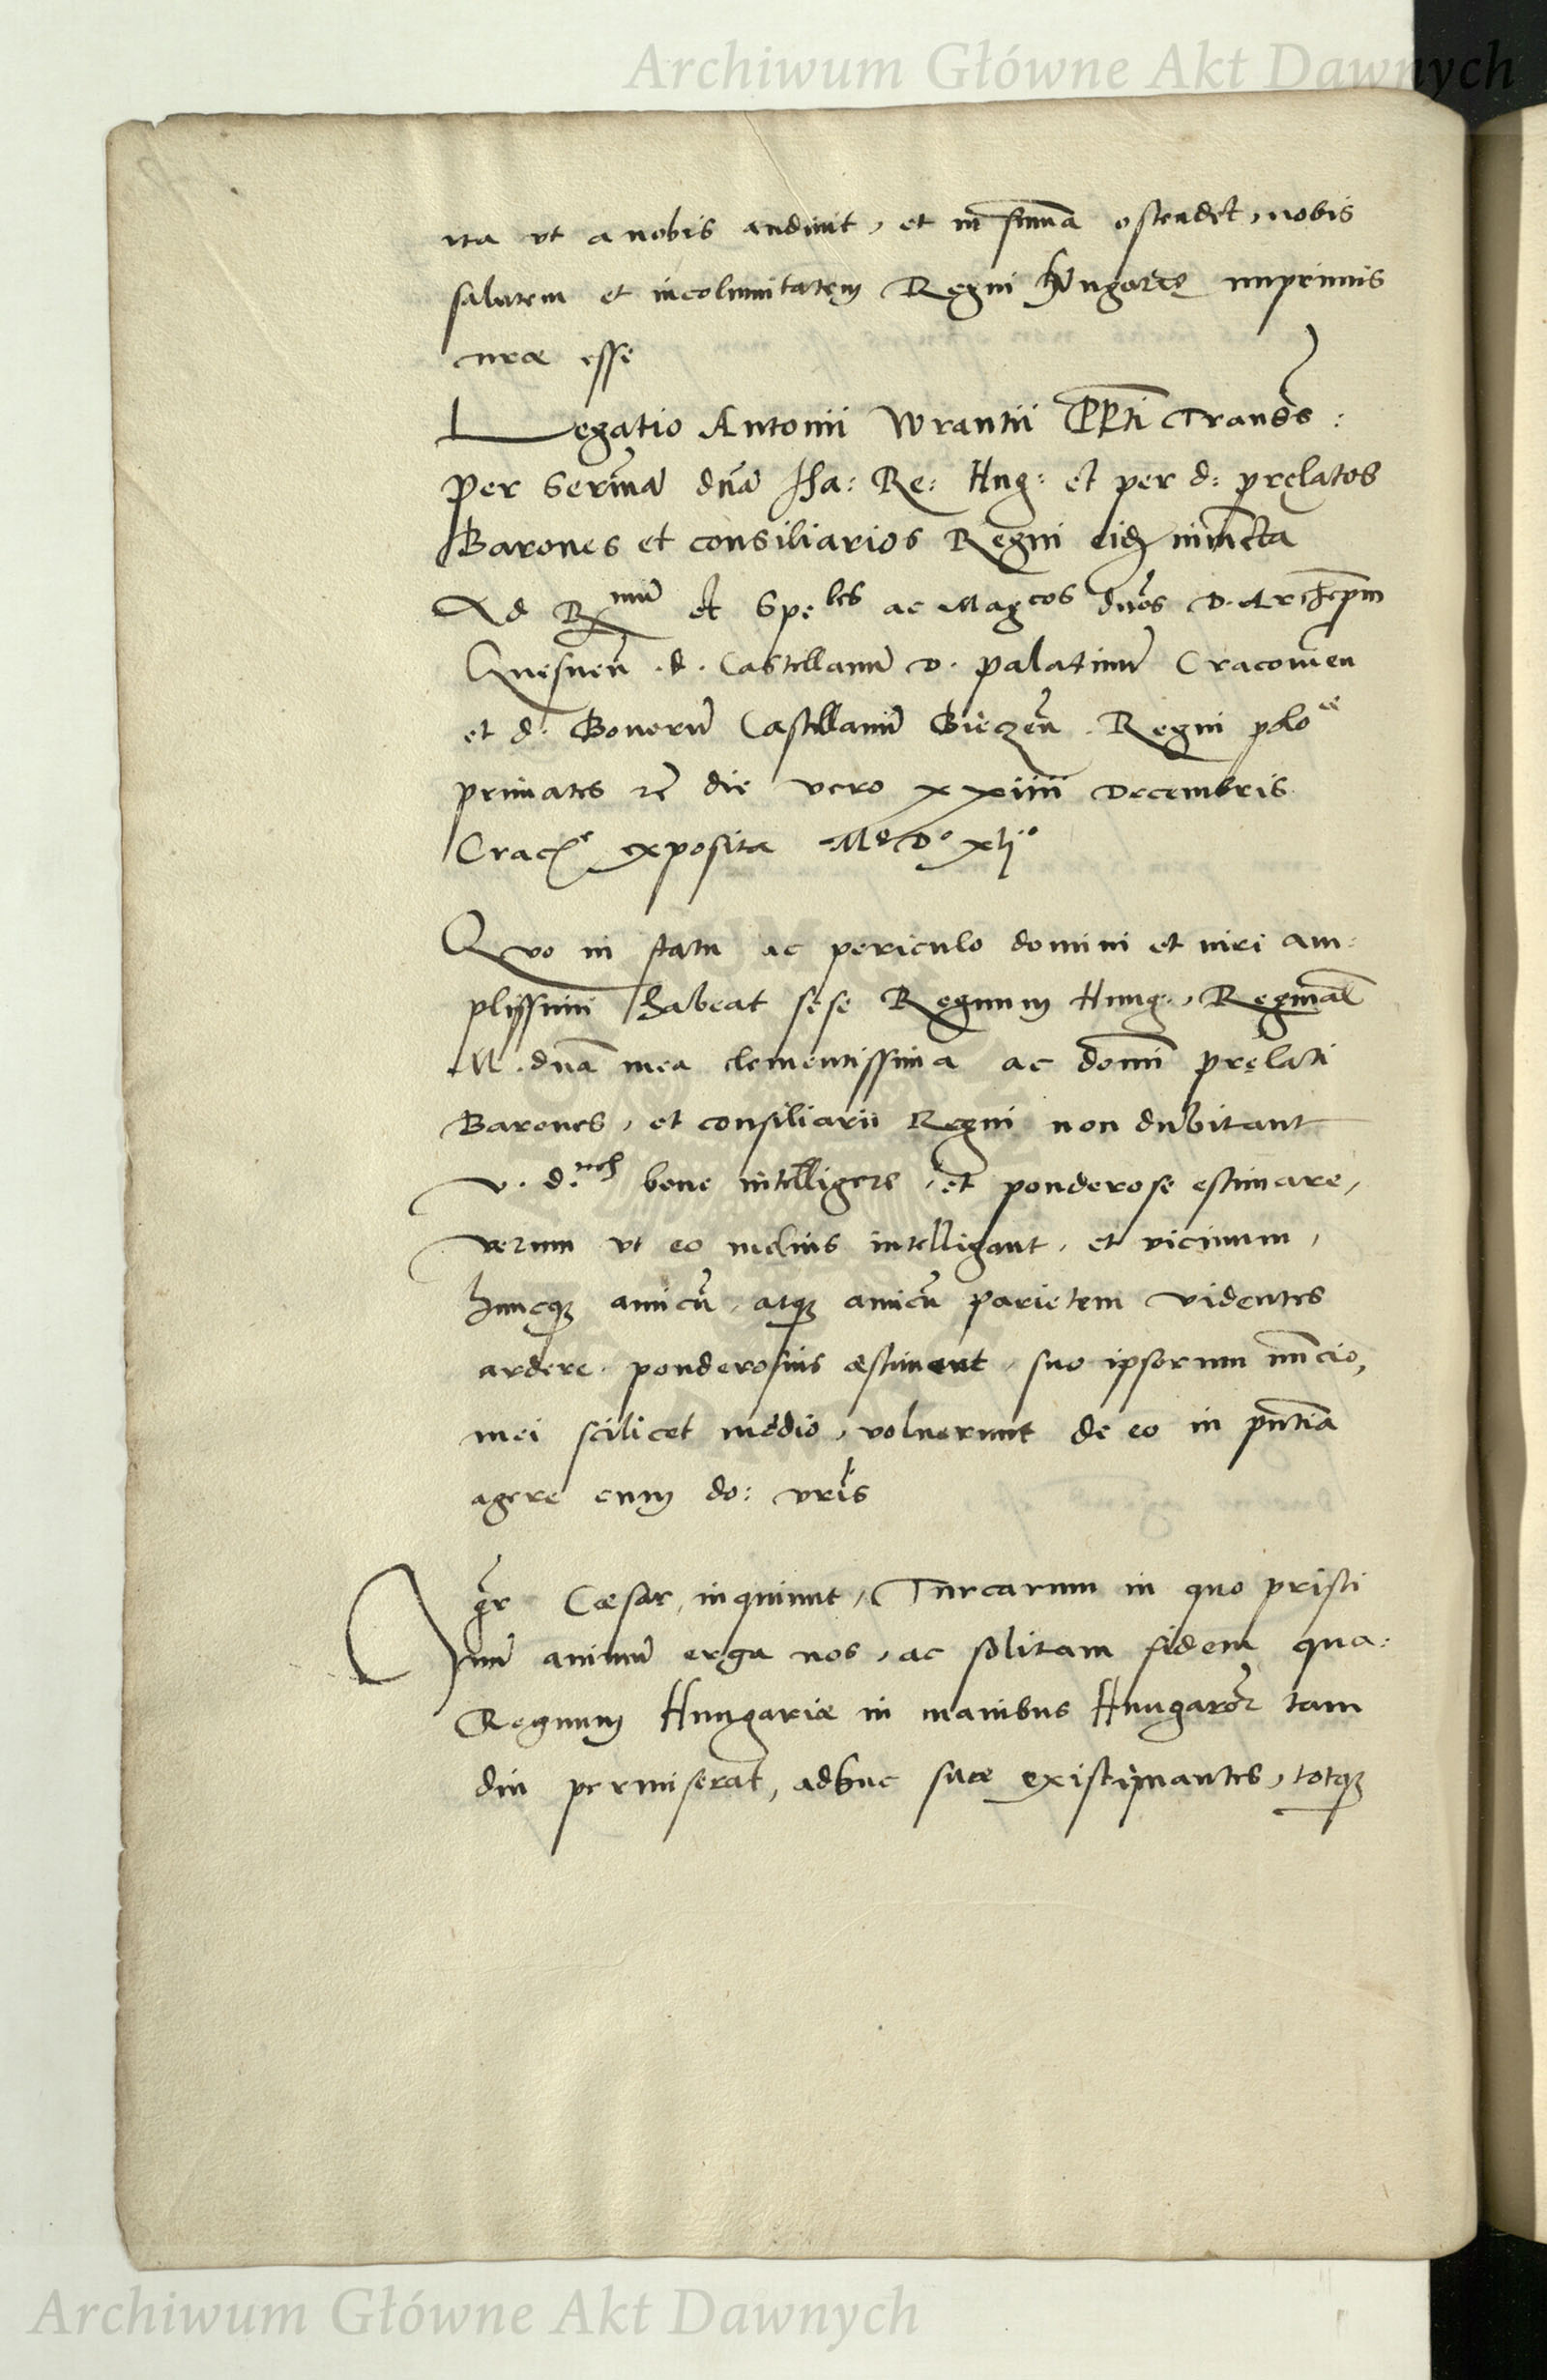 Archiwum Główne Akt Dawnych
ita vt a nobis audiuit, et in summa ostendet, nobis
salutem et incolumitatem Regni Hungarię imprimis
curæ esse
Legatio Antonii Wrantii PPti Transs:
per Serma dna Isa: Re: Hng: et per d: pręlatos
Barones et consiliarios Regni eid iniuncta
Ad Rmu et Spebles ac Magcos dnos D. Archepm
Gnesnen. d. Castellanu D. palatinu Cracouien
et d. Boneru Castellanu Bieczen. Regni poloæ
primates die vero xxiiii Decembris
Crac exposita Mo Do xlio
Quo in statu ac periculo domini et viri am:
plissimi habeat sese Regnum Hung., Reginal
M. dna mea clementissima ac domi pręlati
Barones, et consiliarii Regni non dubitant
v. d. bene intelligere, et ponderose estimare,
verum vt eo melius intelligant, et vicinum,
huncq amicu, atq amicu parietem videntes
ardere, ponderosius æstiment, suo ipsorum nuncio,
mei scilicet medio, voluerunt de eo in pntia
agere cum do: vris
Cæsar, inquiunt, Turcarum in quo pristi
nu animu erga nos, ac solitam fidem qua:
Regnum Hungariæ in manibus Hungaror tam
diu permiserat, adhuc suæ existimantes, totq
Archiwum Główne Akt Dawnych